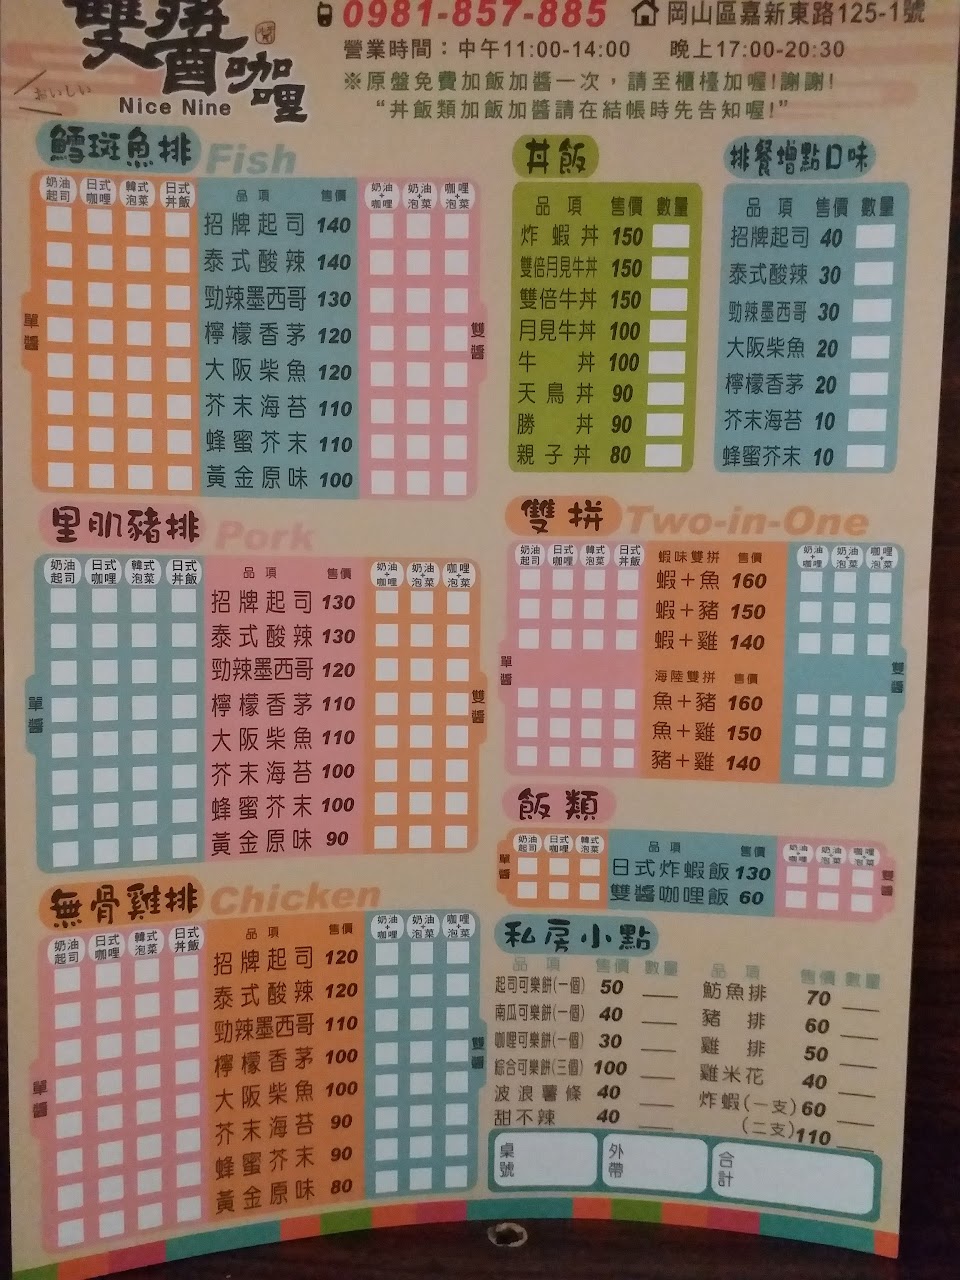 雙醬咖哩
おいしい
Nice Nine
0981-857-885 岡山區嘉新東路125-1號
營業時間：中午11:00-14:00 晚上17:00-20:30
※原盤免費加飯加醬一次，請至櫃檯加喔!謝謝!
“丼飯類加飯加醬請在結帳時先告知喔!”
鱈斑魚排 Fish
奶油起司 日式咖哩 韓式泡菜 日式丼飯 品項 售價 奶油+咖哩 奶油+泡菜 咖哩+泡菜
單醬
雙醬
招牌起司 140
泰式酸辣 140
勁辣墨西哥 130
檸檬香茅 120
大阪柴魚 120
芥末海苔 110
蜂蜜芥末 110
黃金原味 100
丼飯
品項 售價 數量
炸蝦丼 150
雙倍月見牛丼 150
雙倍牛丼 150
月見牛丼 100
牛丼 100
天鳥丼 90
勝丼 90
親子丼 80
排餐增點口味
品項 售價 數量
招牌起司 40
泰式酸辣 30
勁辣墨西哥 30
大阪柴魚 20
檸檬香茅 20
芥末海苔 10
蜂蜜芥末 10
里肌豬排 Pork
奶油起司 日式咖哩 韓式泡菜 日式丼飯 品項 售價 奶油+咖哩 奶油+泡菜 咖哩+泡菜
單醬
雙醬
招牌起司 130
泰式酸辣 130
勁辣墨西哥 120
檸檬香茅 110
大阪柴魚 110
芥末海苔 100
蜂蜜芥末 100
黃金原味 90
雙拼 Two-in-One
奶油起司 日式咖哩 韓式泡菜 日式丼飯 蝦味雙拼 售價 奶油+咖哩 奶油+泡菜 咖哩+泡菜
單醬
雙醬
蝦+魚 160
蝦+豬 150
蝦+雞 140
海陸雙拼 售價
魚+豬 160
魚+雞 150
豬+雞 140
飯類
奶油起司 日式咖哩 韓式泡菜 品項 售價 奶油+咖哩 奶油+泡菜 咖哩+泡菜
單醬
雙醬
日式炸蝦飯 130
雙醬咖哩飯 60
無骨雞排 Chicken
奶油起司 日式咖哩 韓式泡菜 日式丼飯 品項 售價 奶油+咖哩 奶油+泡菜 咖哩+泡菜
單醬
雙醬
招牌起司 120
泰式酸辣 120
勁辣墨西哥 110
檸檬香茅 100
大阪柴魚 100
芥末海苔 90
蜂蜜芥末 90
黃金原味 80
私房小點
品項 售價 數量
起司可樂餅(一個) 50
南瓜可樂餅(一個) 40
咖哩可樂餅(一個) 30
綜合可樂餅(三個) 100
波浪薯條 40
甜不辣 40
品項 售價 數量
魴魚排 70
豬排 60
雞排 50
雞米花 40
炸蝦(一支) 60
(二支) 110
桌號 外帶 合計